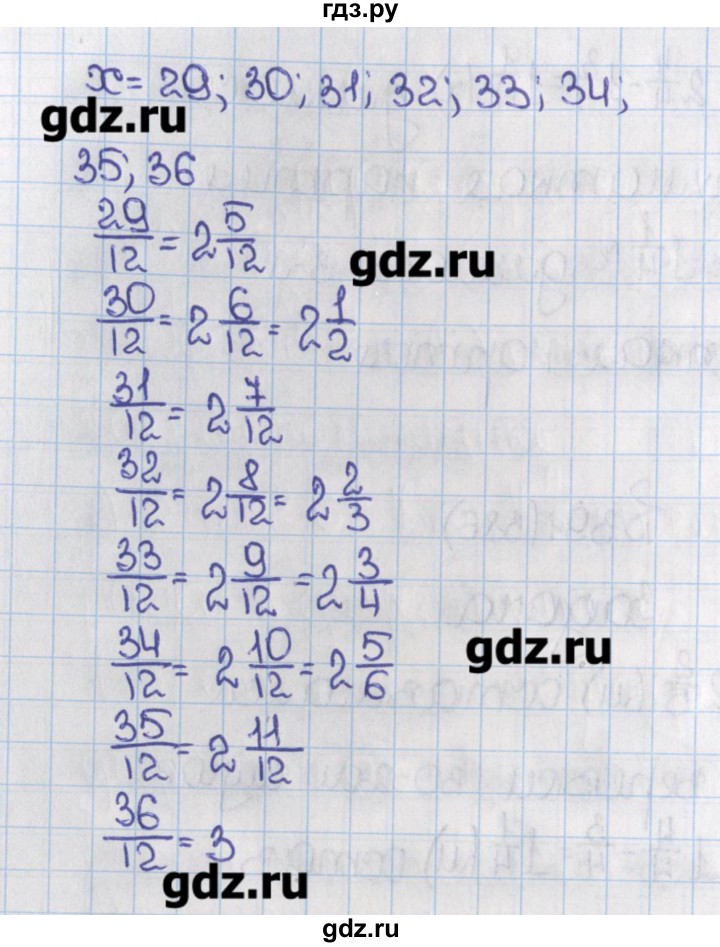 гдз.ру
x = 29; 30; 31; 32; 33; 34;
gdz.ru
35; 36
29/12 = 2 5/12
gdz.ru
30/12 = 2 6/12 = 2 1/2
31/12 = 2 7/12
32/12 = 2 8/12 = 2 2/3
33/12 = 2 9/12 = 2 3/4
34/12 = 2 10/12 = 2 5/6
gdz.ru
35/12 = 2 11/12
36/12 = 3
gdz.ru
gdz.ru